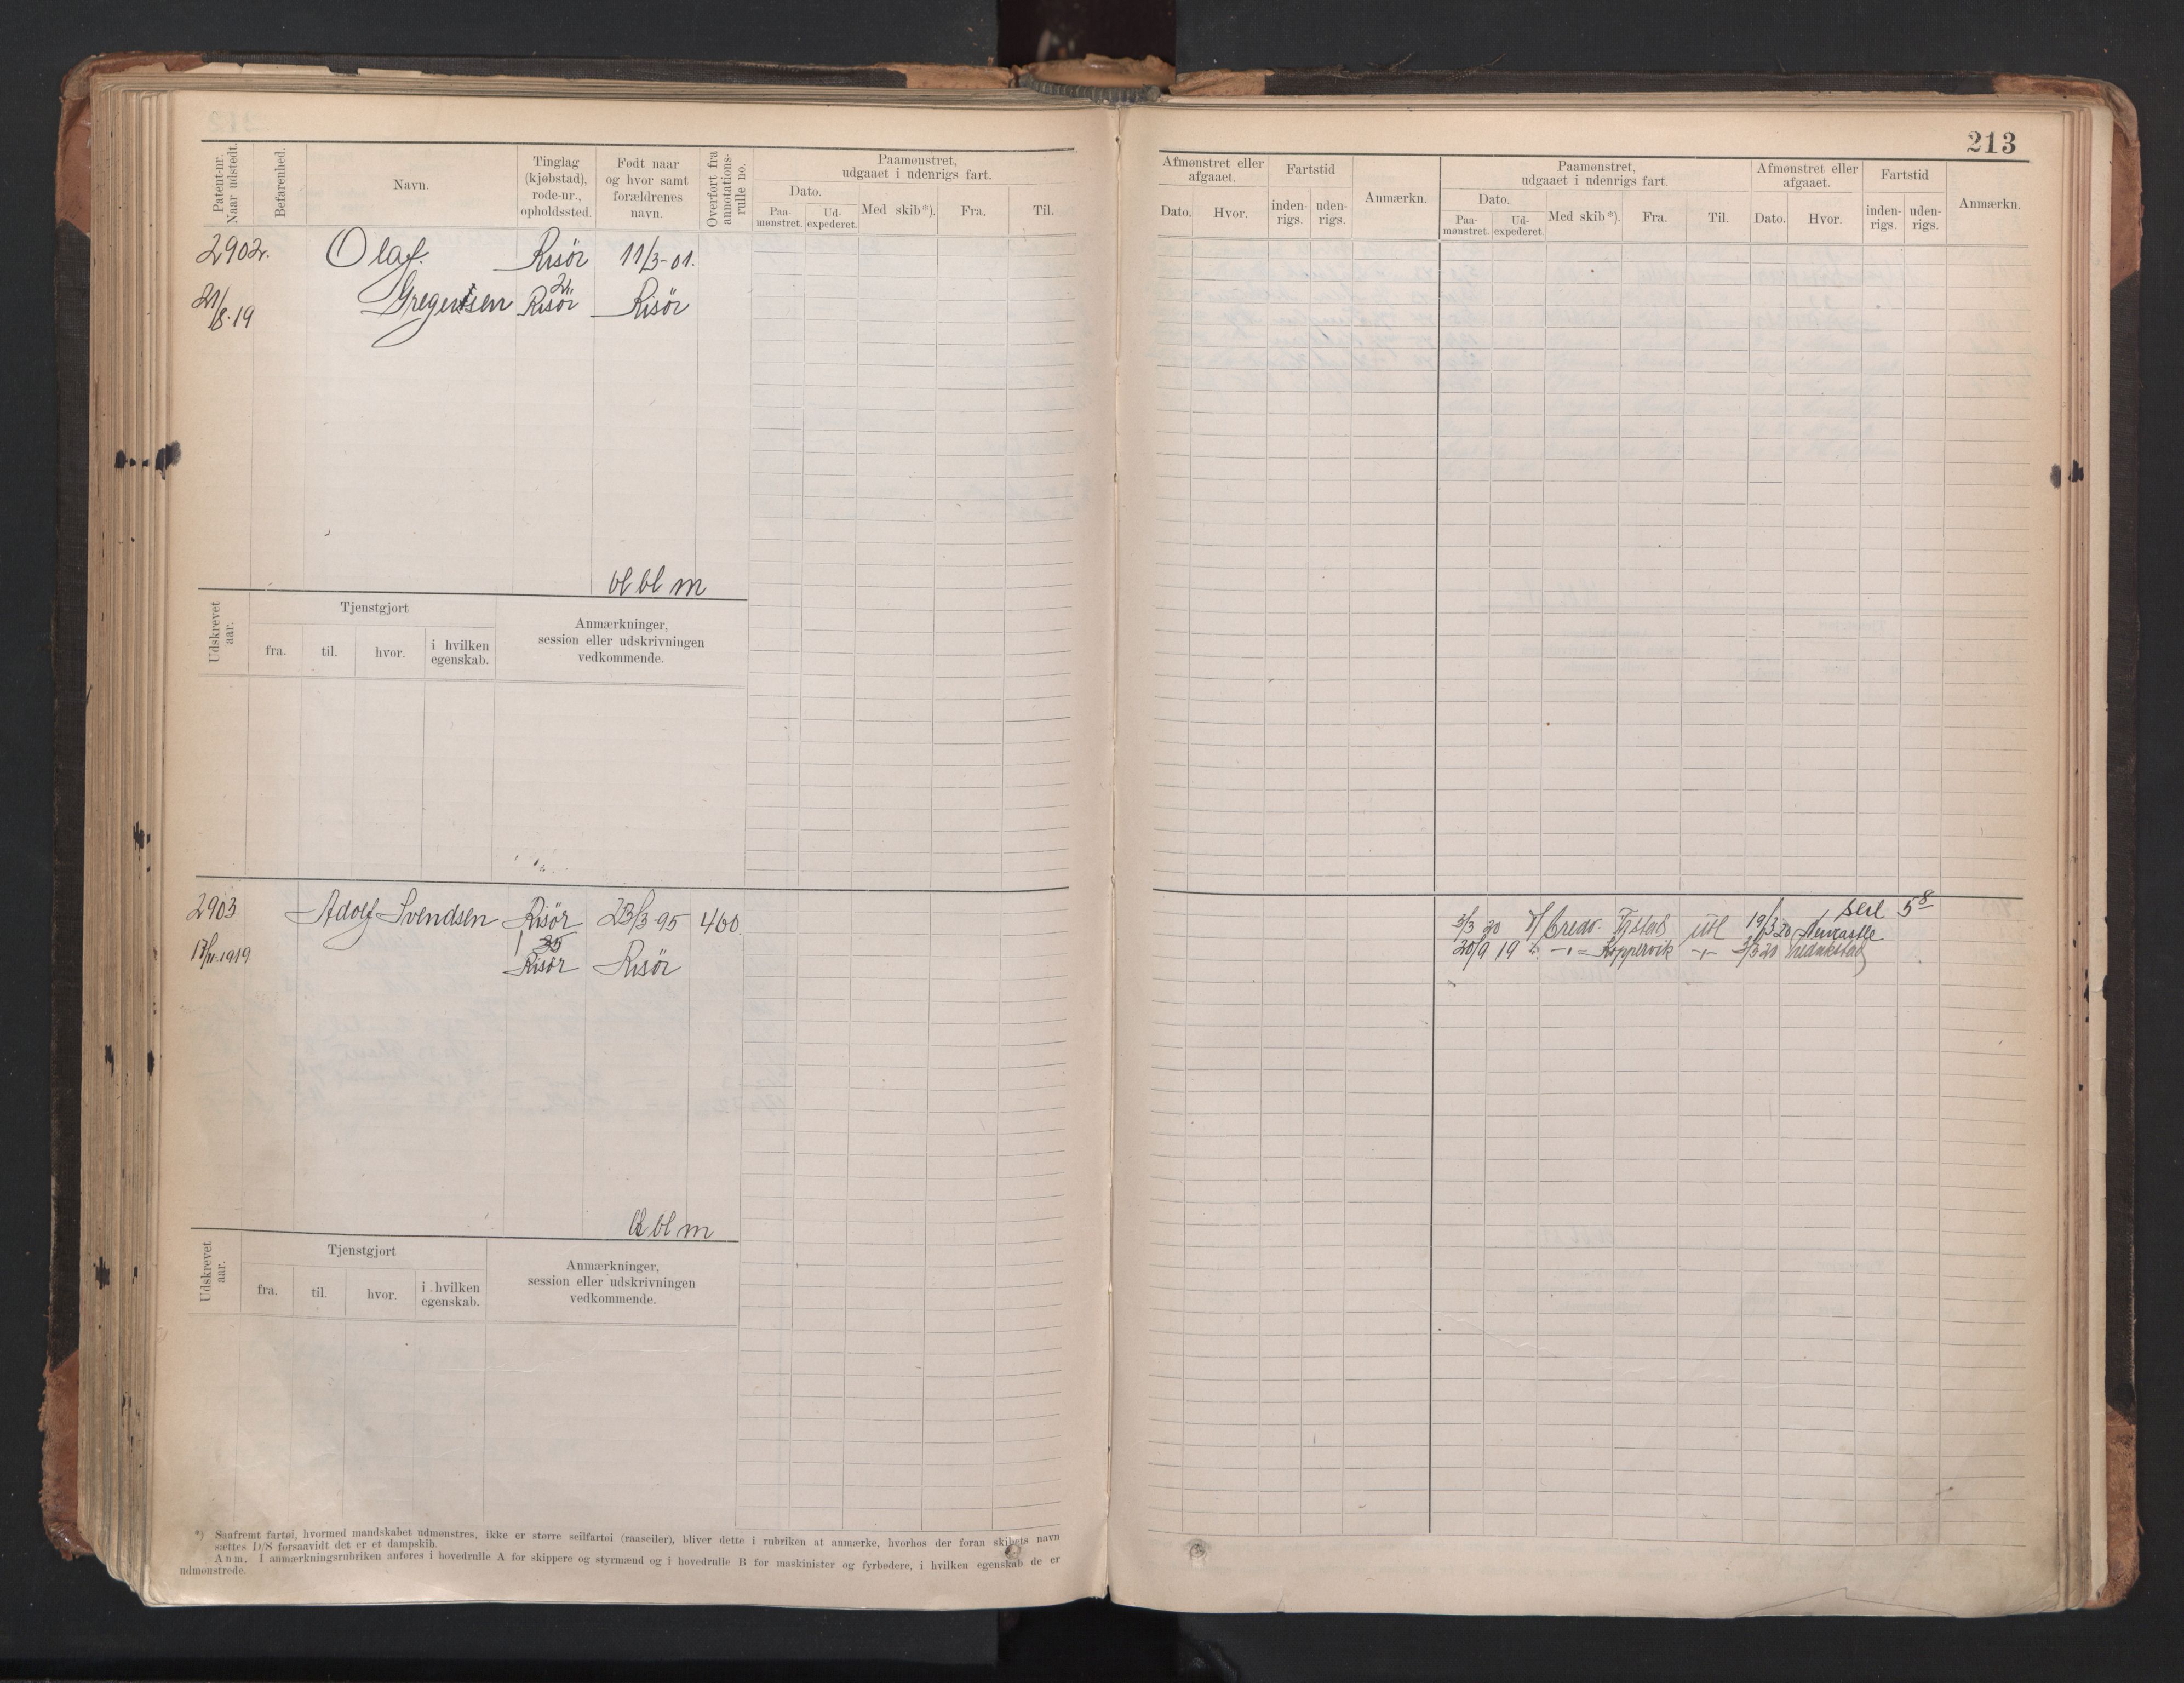 213
Patent-nr. Naar udstedt.
Befarenhed.
Navn.
Tinglag (kjøbstad), rode-nr., opholdssted.
Født naar og hvor samt forældrenes navn.
Overført fra annotationsrulle no.
Paamønstret, udgaaet i udenrigs fart.
Dato.
Paamønstret.
Udexpederet.
Med skib*).
Fra.
Til.
Afmønstret eller afgaaet.
Dato.
Hvor.
Fartstid
indenrigs.
udenrigs.
Anmærkn.
Paamønstret, udgaaet i udenrigs fart.
Dato.
Paamønstret.
Udexpederet.
Med skib*).
Fra.
Til.
Afmønstret eller afgaaet.
Dato.
Hvor.
Fartstid
indenrigs.
udenrigs.
Anmærkn.
2902. Olaf. Risör 11/3-01.
21/8-19 Gregertsen 21. Risör Risör
bl bl m
Udskrevet aar.
Tjenstgjort
fra.
til.
hvor.
i hvilken egenskab.
Anmærkninger, session eller udskrivningen vedkommende.
2903 Adolf Svendsen Risör 23/3-95 460.
35
17/11-1919 Risör Risör
seil 5 8
3/3 20 Credo Fr.stad utl 19/3 20 Newcastle
20/9 19 Koppervik 3/3 20 Fredrikstad
bl bl m
Udskrevet aar.
Tjenstgjort
fra.
til.
hvor.
i hvilken egenskab.
Anmærkninger, session eller udskrivningen vedkommende.
*) Saafremt fartøi, hvormed mandskabet udmønstres, ikke er større seilfartøi (raaseiler), bliver dette i rubriken at anmærke, hvorhos der foran skibets navn
sættes D/S forsaavidt det er et dampskib.
Anm. I anmærkningsrubriken anføres i hovedrulle A for skippere og styrmænd og i hovedrulle B for maskinister og fyrbødere, i hvilken egenskab de er
udmønstrede.